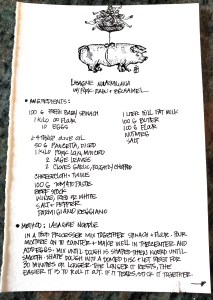 LASAGNE
W/ PORK RAGU + BECHAMEL
• INGREDIENTS:
100 G FRESH BABY SPINACH
1 KILO 00 FLOUR
10 EGGS
2-4 TBSP OLIVE OIL
50 G PANCETTA, DICED
1 KILO PORK LOIN, MINCED
2 SAGE LEAVES
2 CLOVES GARLIC, ROUGHLY CHOPPED
CHEESECLOTH + TWINE
100 G TOMATO PASTE
BEEF STOCK
WINE, RED OR WHITE
SALT + PEPPER
PARMIGIANO REGGIANO
1 LITER FULL FAT MILK
100 G BUTTER
100 G FLOUR
NUTMEG
SALT
• METHOD: LASAGNE NOODLE
IN A FOOD PROCESSOR MIX TOGETHER SPINACH + FLOUR. POUR
MIXTURE ON TO COUNTER + MAKE WELL IN THE CENTER AND
ADD EGGS. MIX UNTIL DOUGH IS SMOOTH. KNEAD UNTIL
SMOOTH. SHAPE DOUGH INTO A DOMED DISC + LET REST FOR
30 MINUTES OR LONGER. THE LONGER IT RESTS, THE
EASIER IT IS TO ROLL IT OUT. IF IT TEARS, FOLD IT TOGETHER